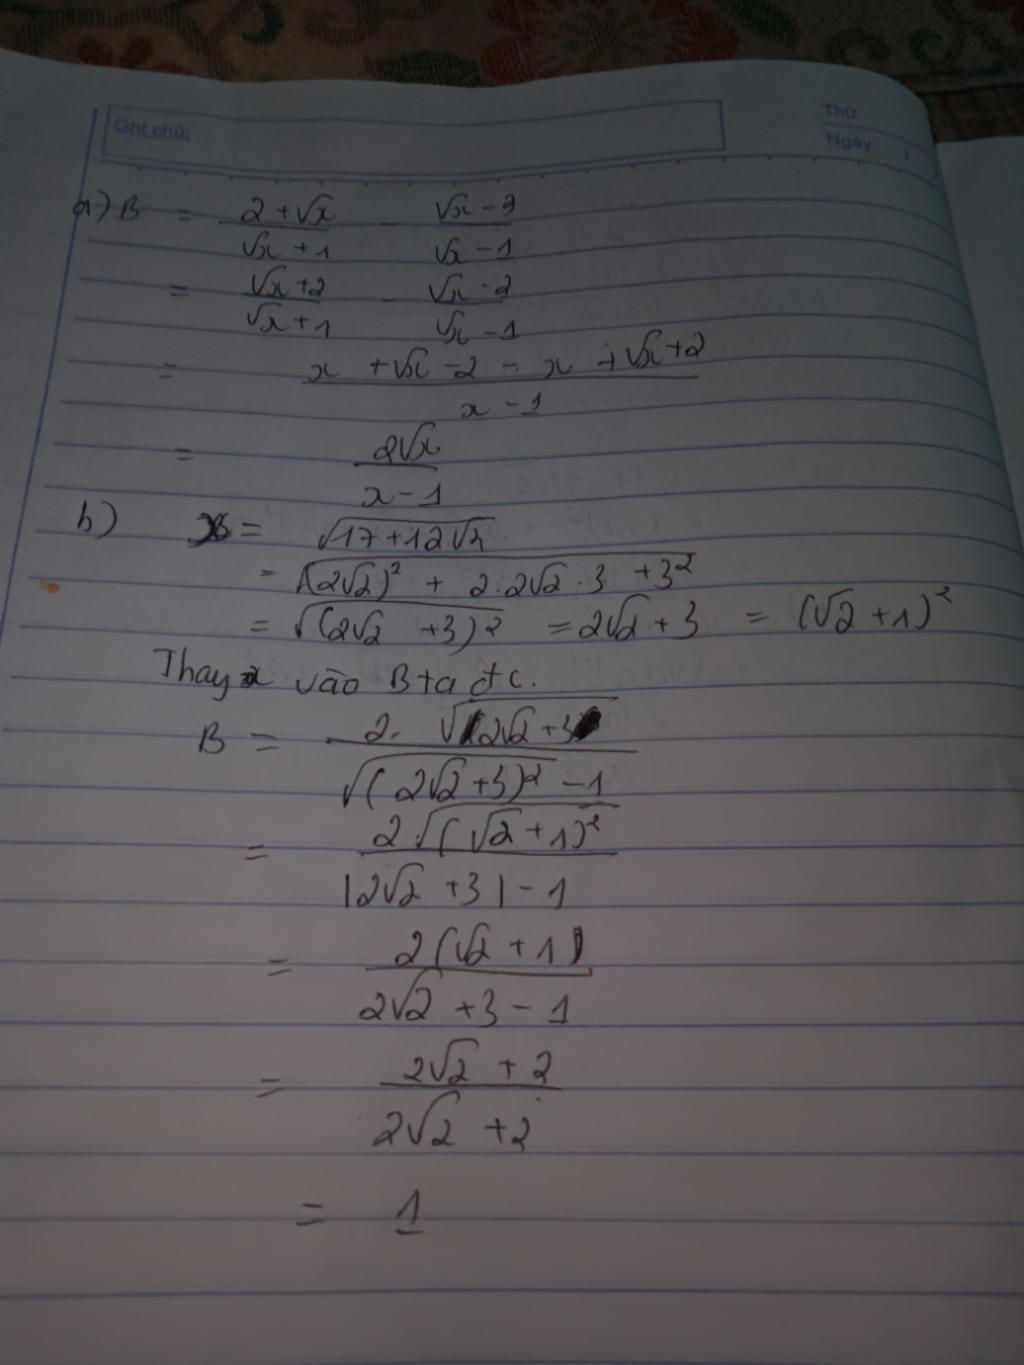 Ghi chú:
Thứ
Ngày /
a) B = (2 + √x)/(√x + 1) - (√x - 2)/(√x - 1)
= (√x + 2)/(√x + 1) - (√x - 2)/(√x - 1)
= (x + √x - 2 - x + √x + 2)/(x - 1)
= 2√x/(x - 1)
b) x = √(17 + 12√2)
= √((2√2)² + 2.2√2.3 + 3²)
= √((2√2 + 3)²) = 2√2 + 3 = (√2 + 1)²
Thay x vào B ta đc.
B = 2.√(2√2 + 3)/(√((2√2 + 3)²) - 1)
= 2√((√2 + 1)²)/(|2√2 + 3| - 1)
= 2(√2 + 1)/(2√2 + 3 - 1)
= (2√2 + 2)/(2√2 + 2)
= 1